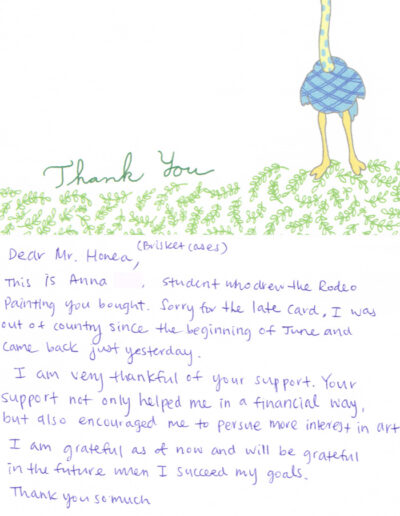 Thank You
(Brisket cases)
Dear Mr. Honea,
This is Anna , student who drew the Rodeo
Painting you bought. Sorry for the late card, I was
out of country since the beginning of June and
came back just yesterday.
I am very thankful of your support. Your
support not only helped me in a financial way,
but also encouraged me to persue more interest in art
I am grateful as of now and will be grateful
in the future when I succeed my goals.
Thank you so much